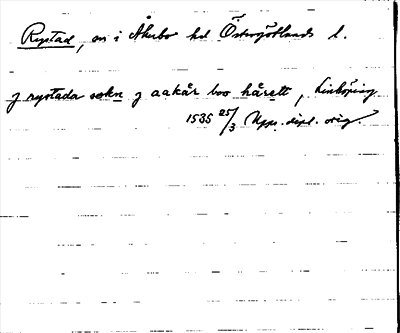 Rystad, sn i Åkerbo hd Östergötlands l.
J rystada sokn J aakär boo hårett, Linköping
1535 25/3 Upps. dipl. orig.